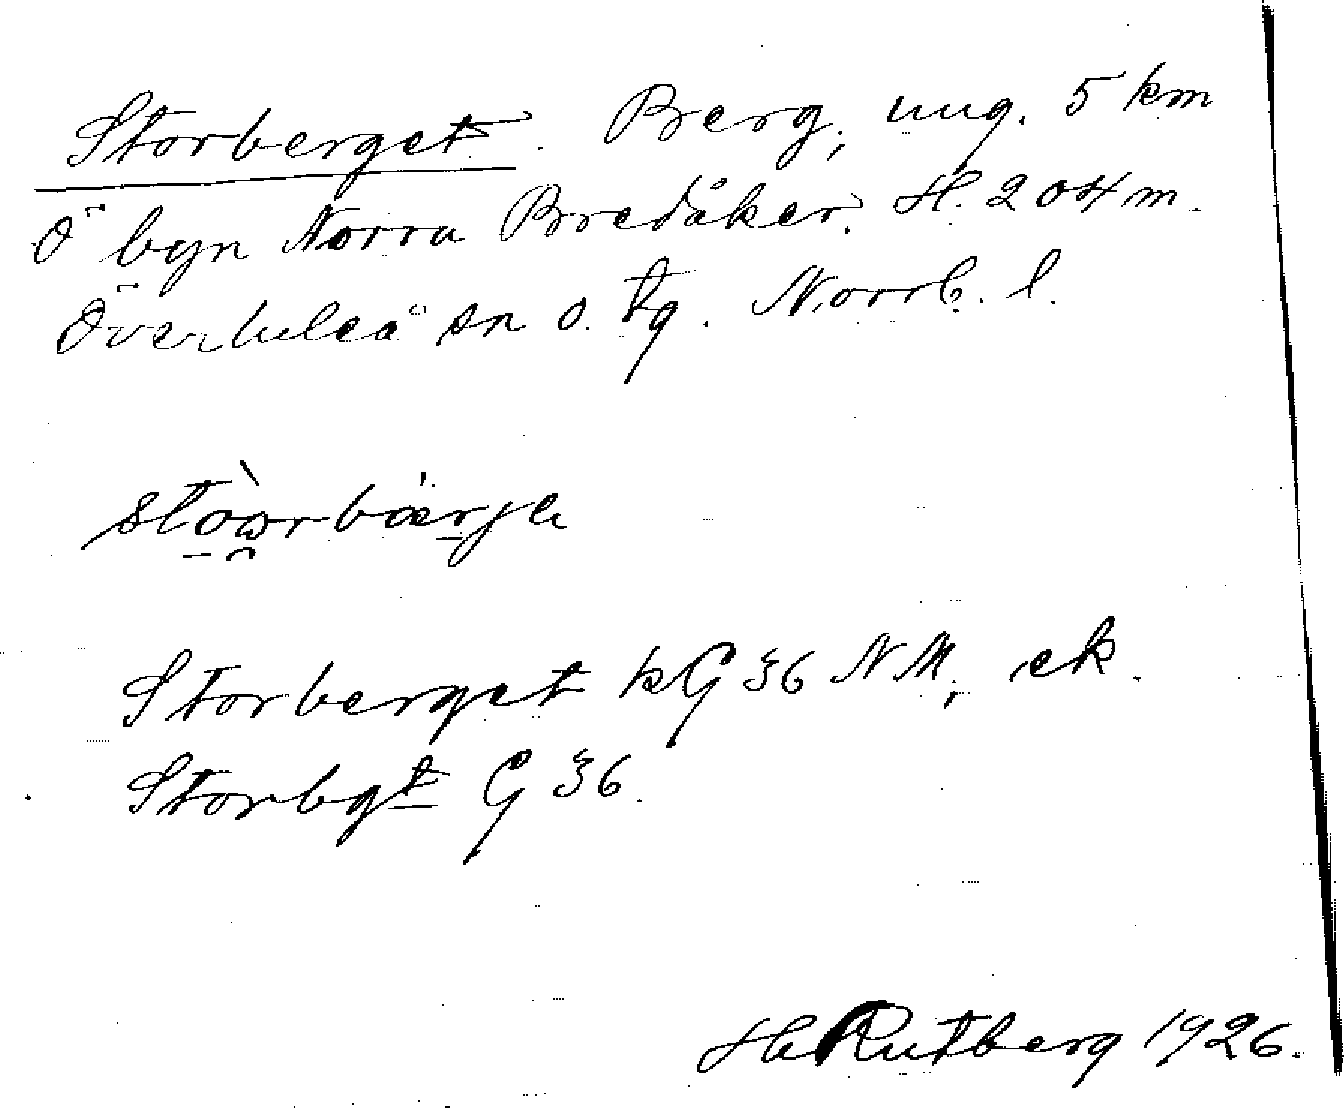 Storberget. Berg, ung. 5 km
Ö byn Norra Bredåker. H. 204 m.
Överluleå sn o. tg. Norrb. l.
Storberget kG 36 NM, ek.
Storbgt G 36.
H Rutberg 1926.